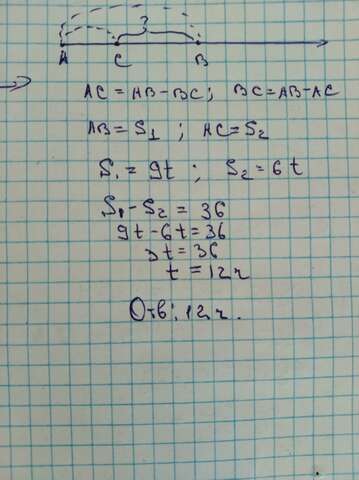 ?
A C B
AC = AB - BC; BC = AB - AC
AB = S₁ ; AC = S₂
S₁ = 9t ; S₂ = 6t
S₁ - S₂ = 36
9t - 6t = 36
3t = 36
t = 12ч
Отв: 12ч.